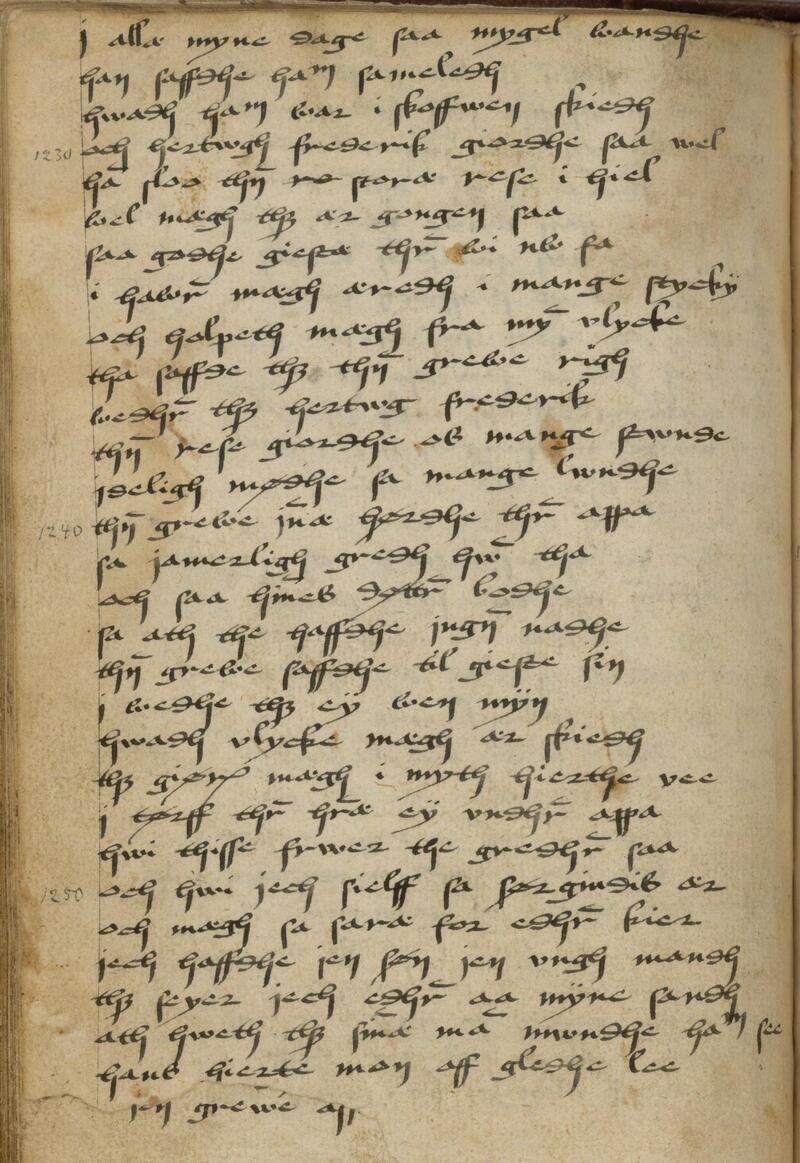 j allæ myne dage saa mygel wandhe
han saffdhe ham sameledh
hwadh ham war i skoffwen skiedh
1230 och hertwgh frederik giordhe saa wel
ha̅ sloo thn̅ storæ rese i hiel
wel mægh thꝫ ær gongen saa
saa godhe giestæ thr̅ wi nw fa
i hawr̅ mægh æredh i mange stycky
och holpeth mægh fra my̅ vlycke
tha saffde thꝫ thn̅ grewe righ
wedhr̅ thꝫ hertwg frederik
thn̅ rese giordhe os mange stwnde
jdeligh mødhe sa mange lwndhe
1240 thn̅ grewe jn̅æ hørdhe thr̅ appa
sa jamerligh gredh hw̅ tha
och saa hines døttr̅ bodhe
sa ath the haffdhe jngn̅ nadhe
thn̅ grewe saffdhe til gieste sin
j wedhe thꝫ ey wen myn
hwadh vlycke mægh ær skiedh
thꝫ giør mægh i myth hierthe vee
j tørff thr̅ hr̅æ ey vndhr̅ appa
hwi thisse frwer the gredhr̅ saa
1250 och hwi jech sielff sa sørgindis ær
och mægh sa saræ for edhr̅ kier
jech haffdhe jen søn jen vngh mandh
thꝫ seyer jech edhr̅ aa myne sandh
ath hweth thꝫ sin̅æ ma̅ mwndhe ham see
hans hierte mon aff gledhe lee
grewe